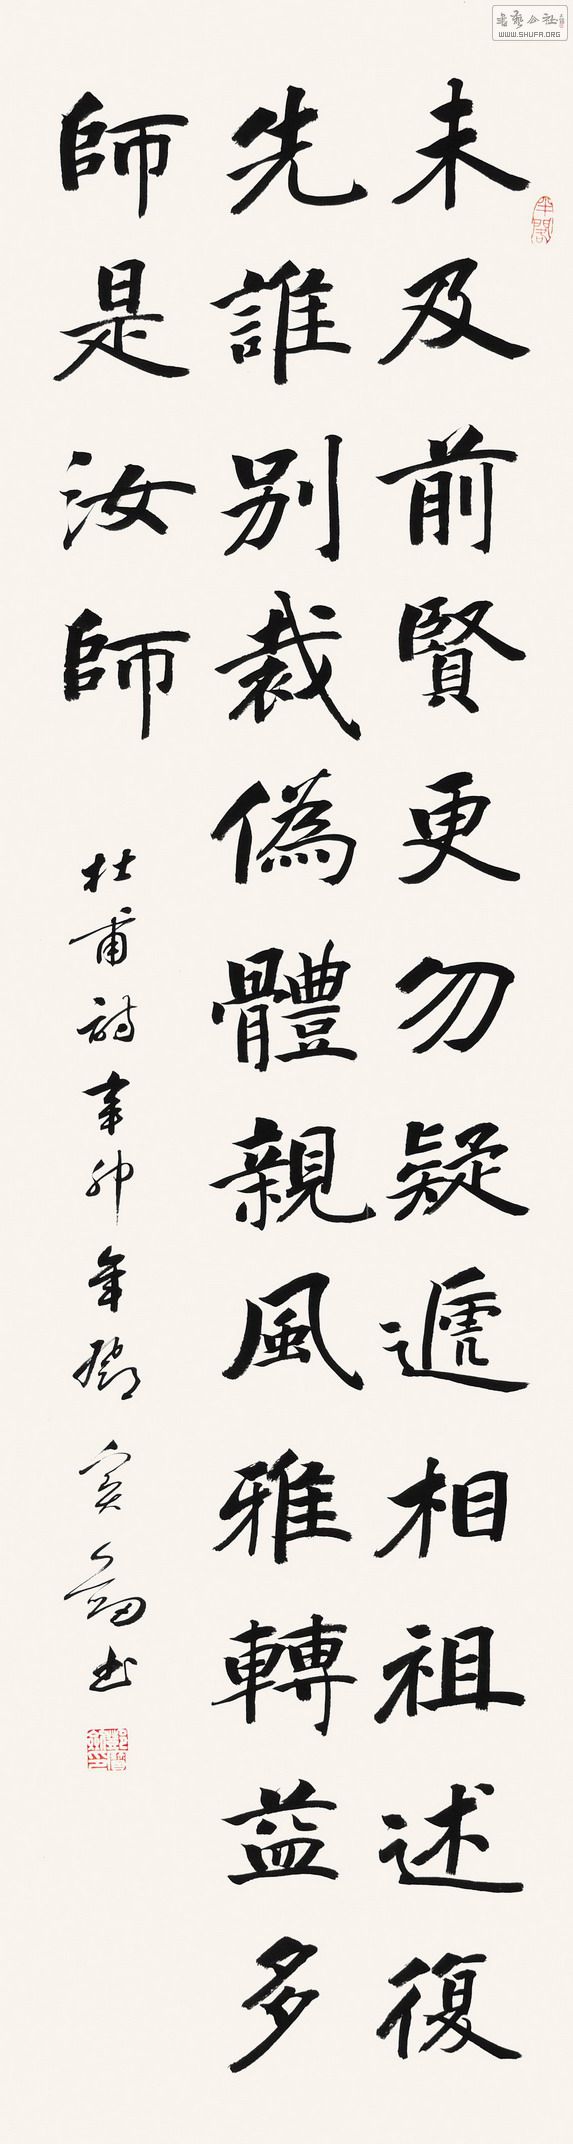 未及前賢更勿疑遞相祖述復
先誰别裁偽體親風雅轉益多
師是汝師
杜甫詩辛卯年鄧寶劍书
书艺公社
WWW.SHUFA.ORG